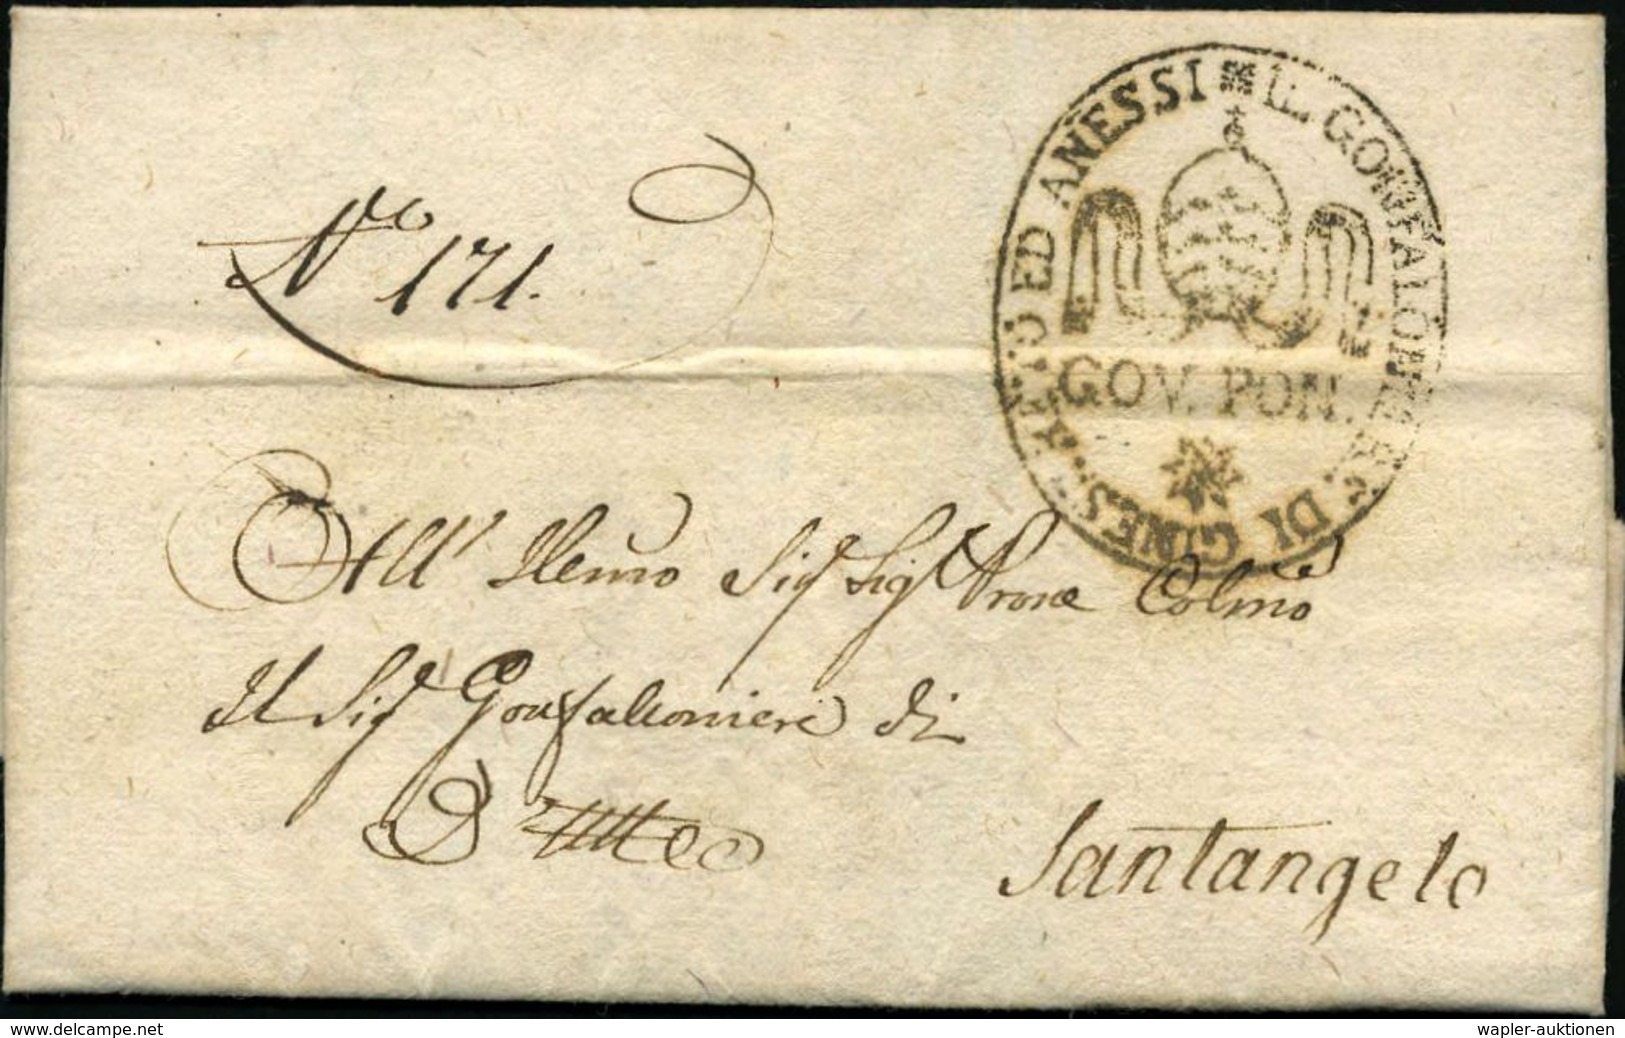 No 171.
IL GONFALONIERE DI GINES. ED ANESSI
GOV. PON.
All' Illmo Sig Sig Prone Colmo
Il Sig Gonfalloniere di
Santangelo
www.delcampe.net
wapler-auktionen